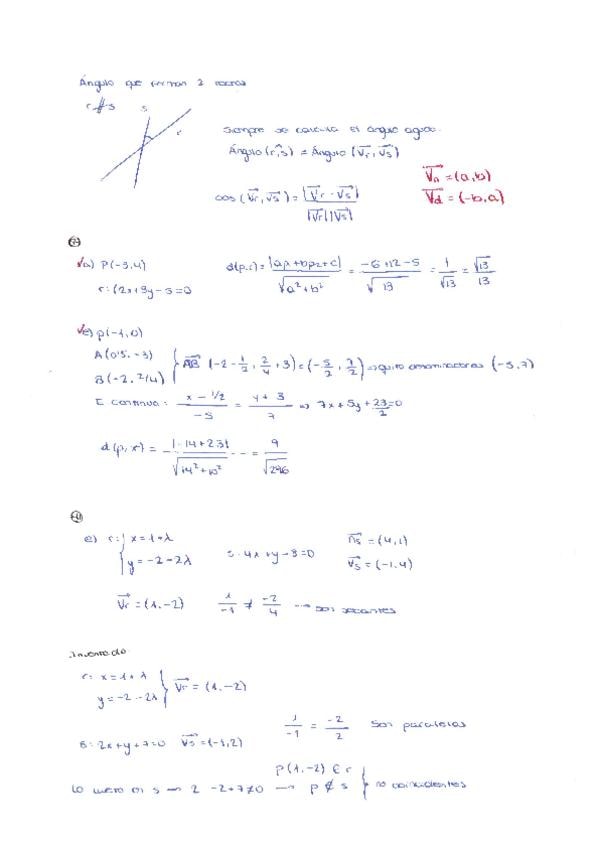 Ángulo que forman 2 rectas
r ∦ s
s
r
Siempre se calcula el ángulo agudo.
Ángulo (r,s) = Ángulo (Vr, Vs)
Vn = (a,b)
cos (Vr, Vs) = |Vr · Vs| / |Vr| |Vs|
Vd = (-b,a)
a) P(-3,4)
d(p,r) = |ap1 + bp2 + c| / √a² + b² = -6+12-5 / √13 = 1/√13 = √13/13
r: (2x+3y-5=0
e) p(-1,0)
A(0'5, -3)
B(-2, 2/4)
AB (-2 - 1/2, 2/4 + 3) = (-5/2, 7/2) => quito denominadores (-5,7)
E continua: x - 1/2 / -5 = y + 3 / 7 => 7x + 5y + 23/2 = 0
d(p,r) = |-14+23| / √14²+10² --- = 9 / √296
e) r: { x = 1+λ
y = -2-2λ
s: 4x+y-3=0
ns = (4,1)
Vs = (-1,4)
Vr = (1,-2)
1/-1 ≠ -2/4 → son secantes
Inventado
r: x = 1+λ
y = -2-2λ } Vr = (1,-2)
1/-1 = -2/2 Son paralelas
s: 2x+y+7=0 Vs = (-1,2)
P(1,-2) ∈ r
Lo meto en s → 2 - 2 + 7 ≠ 0 → P ∉ s } no coincidentes